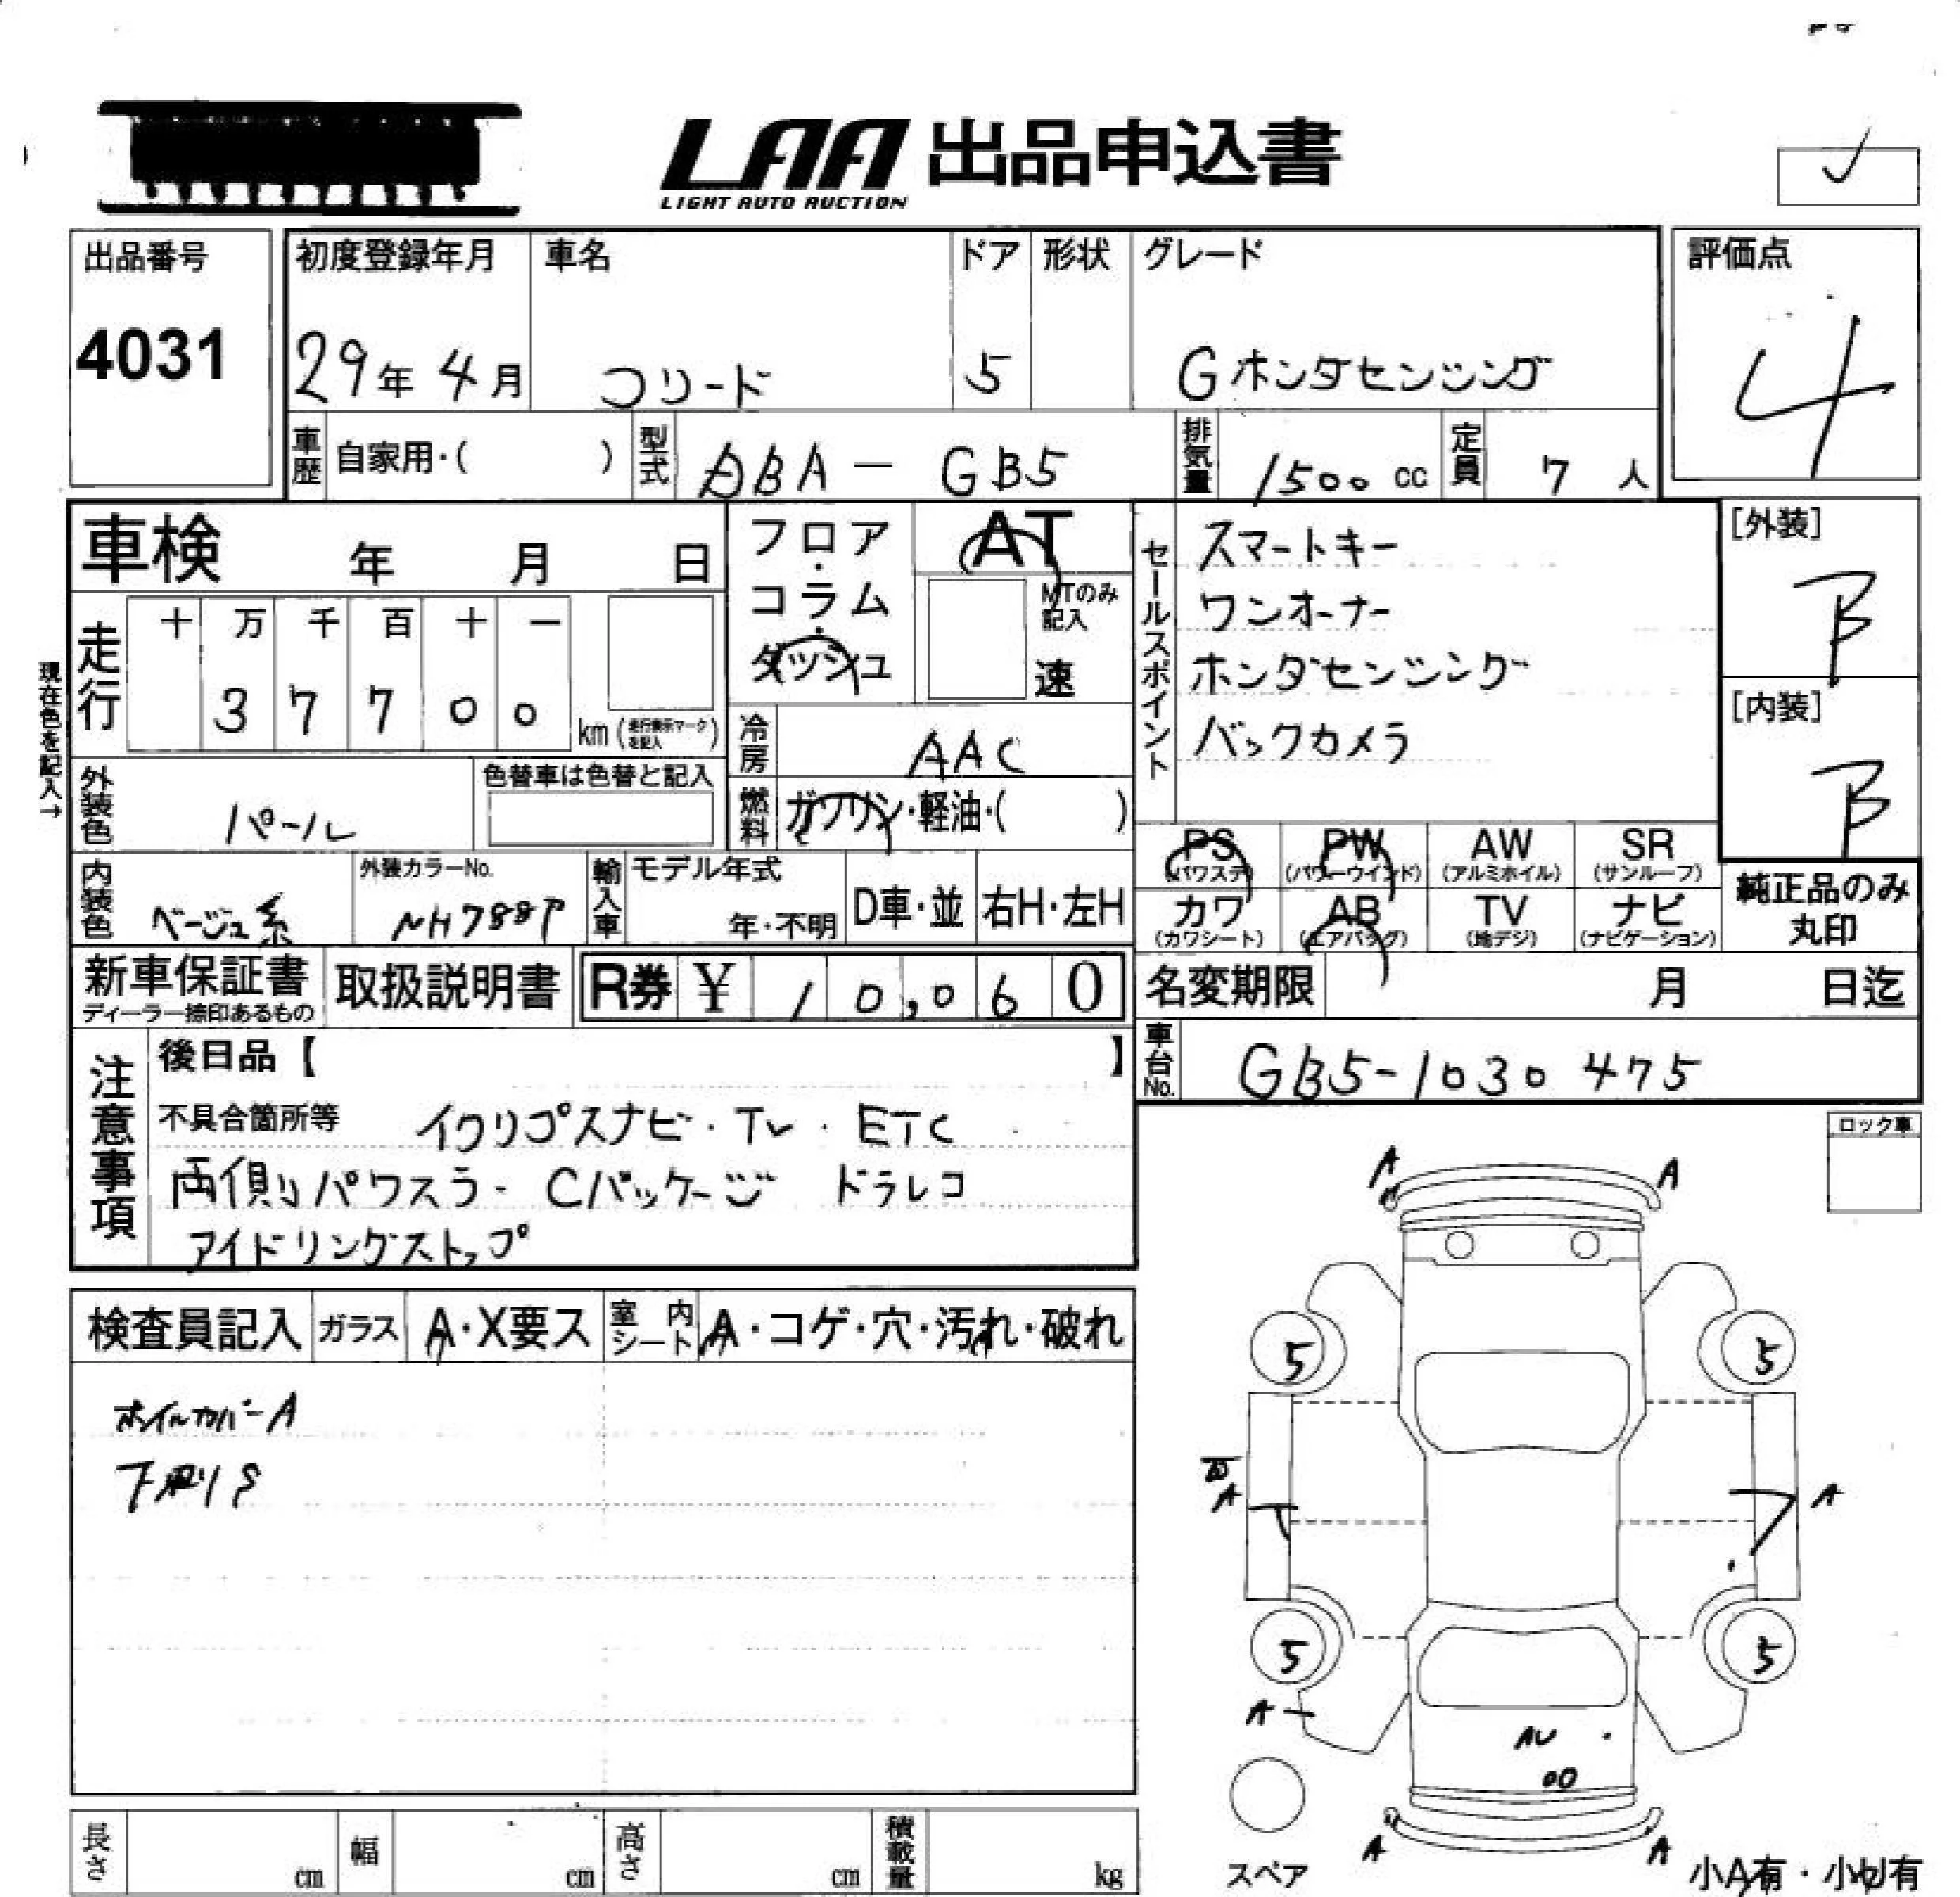 LAA 出品申込書
LIGHT AUTO AUCTION
出品番号
4031
初度登録年月
29年 4月
車名
フリード
ドア
5
形状
グレード
G ホンダセンシング
評価点
4
車歴
自家用・( )
型式
DBA - GB5
排気量
1500 cc
定員
7 人
車検 年 月 日
フロア・コラム・ダッシュ
AT
MTのみ記入
速
セールスポイント
スマートキー
ワンオーナー
ホンダセンシング
バックカメラ
[外装]
B
[内装]
B
現在色を記入→
走行
十 万 千 百 十 一
3 7 7 0 0
km (走行表示マークを記入)
冷房
AAC
外装色
パール
色替車は色替と記入
燃料
ガソリン・軽油・( )
PS
(パワステ)
PW
(パワーウインド)
AW
(アルミホイル)
SR
(サンルーフ)
カワ
(カワシート)
AB
(エアバッグ)
TV
(地デジ)
ナビ
(ナビゲーション)
純正品のみ
丸印
内装色
ベージュ系
外装カラーNo.
NH788P
輸入車
モデル年式
年・不明
D車・並
右H・左H
新車保証書
ディーラー捺印あるもの
取扱説明書
R券 ¥ 10,060
名変期限 月 日迄
車台No.
GB5-1030475
注意事項
後日品【 】
不具合箇所等
イクリプスナビ・TV・ETC
両側パワスラ- Cパッケージ ドラレコ
アイドリングストップ
ロック車
検査員記入
ガラス
A・X要ス
室内シート
A・コゲ・穴・汚れ・破れ
ホイルカバーA
下廻りS
A A
5 5
A A
5 5
A
AU
A A
スペア
小A有・小U有
長さ cm
幅 cm
高さ cm
積載量 kg